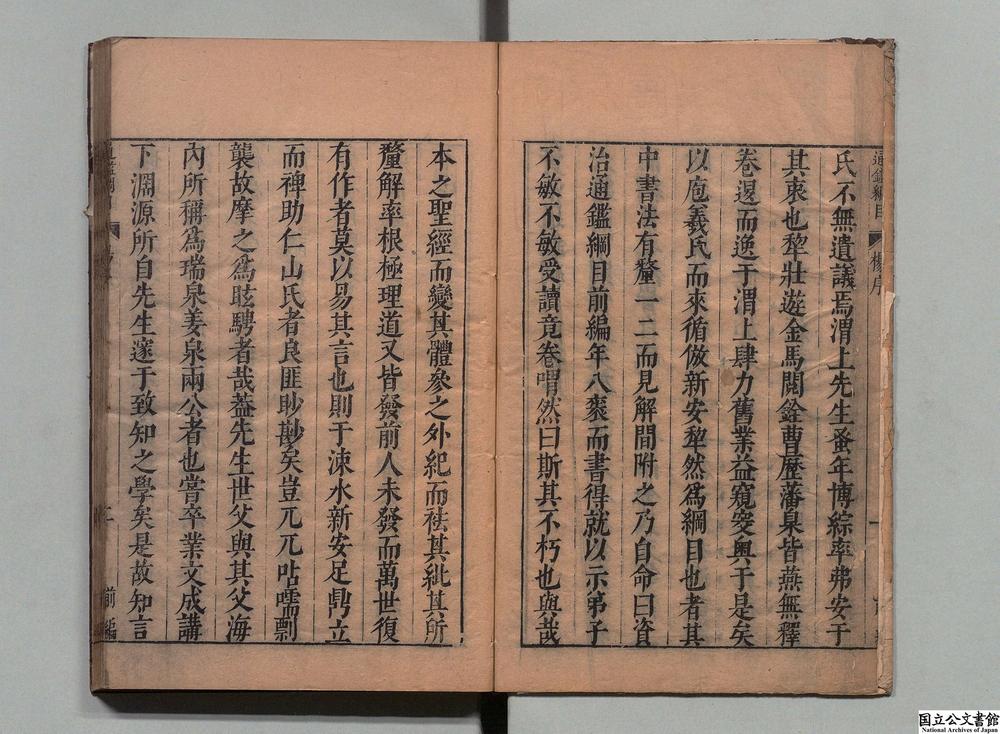 通鑑綱目 楊序
氏不無遺議焉渭上先生蚤年博綜率弗安于
其衷也犂壯遊金馬閱銓曹歷藩臬皆燕無釋
卷退而逸于渭上肆力舊業益窺窔奧于是矣
以庖羲氏而來循倣新安犂然爲綱目也者其
中書法有釐一二而見解間附之乃自命曰資
治通鑑綱目前編年八袠而書得就以示弟子
不敏不敏受讀竟卷喟然曰斯其不朽也與哉
本之聖經而變其體參之外紀而袪其紕其所
釐解率根極理道又皆發前人未發而萬世復
有作者莫以易其言也則于涑水新安足鼎立
而裨助仁山氏者良匪眇尠矣豈兀兀呫嚅剽
襲故摩之爲眩騁者哉葢先生世父與其父海
內所稱爲瑞泉姜泉兩公者也嘗卒業文成講
下淵源所自先生邃于致知之學矣是故知言
二 前編
国立公文書館
National Archives of Japan